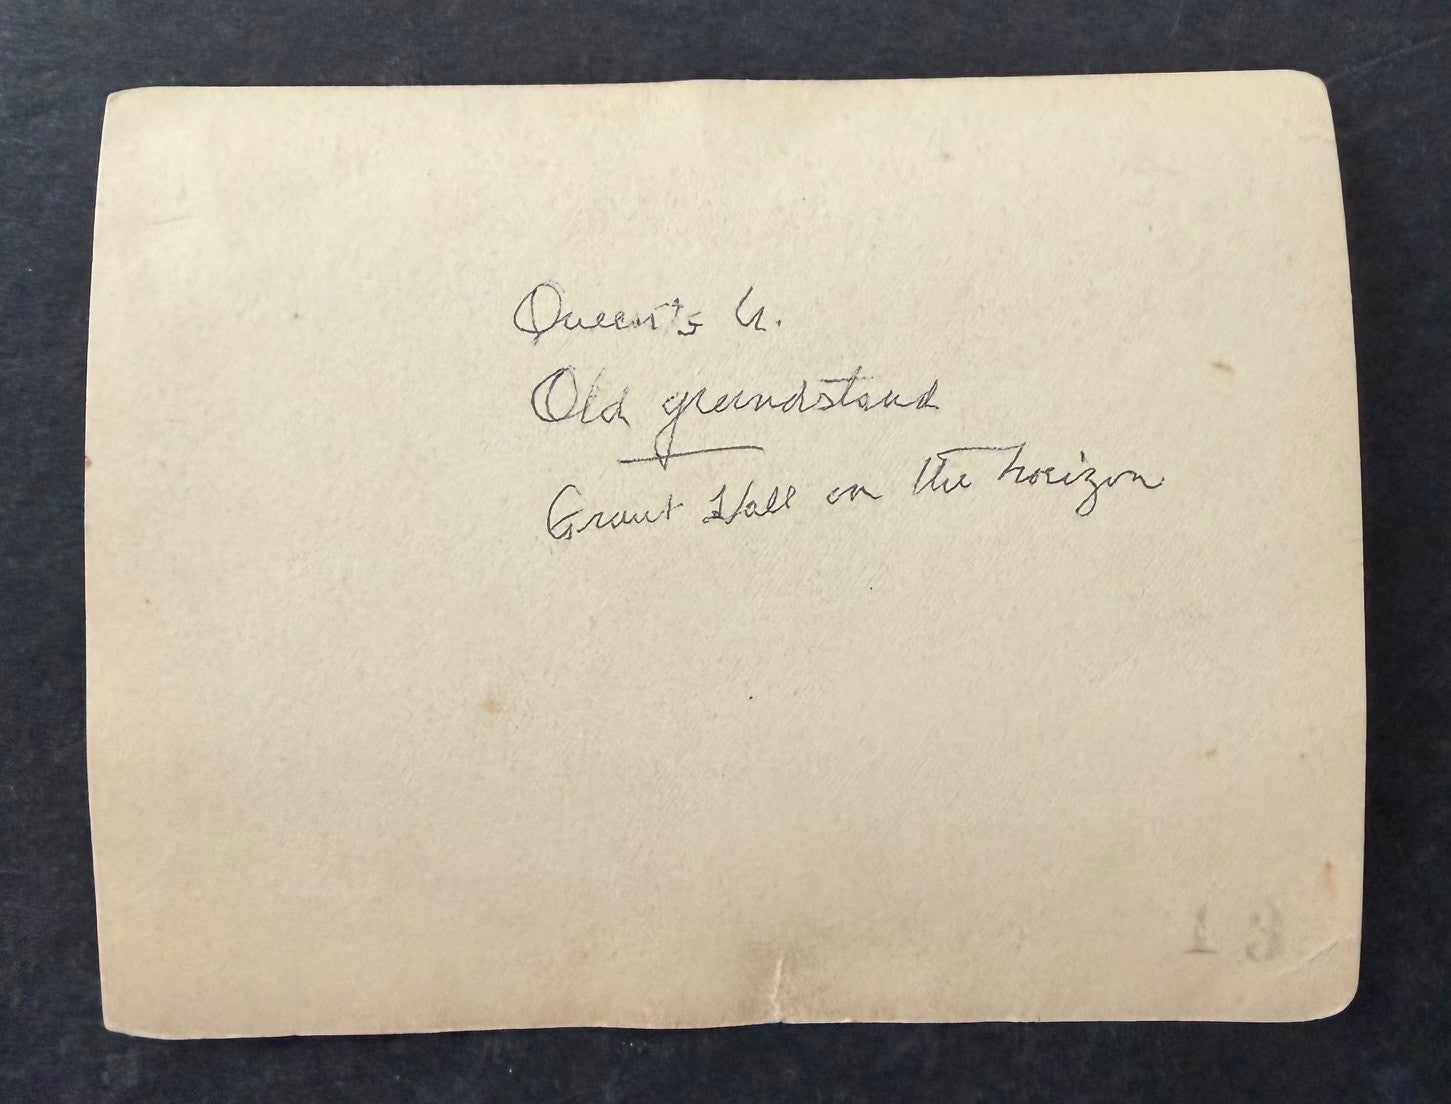 Queen's U.
Old grandstand
Grant Hall on the horizon